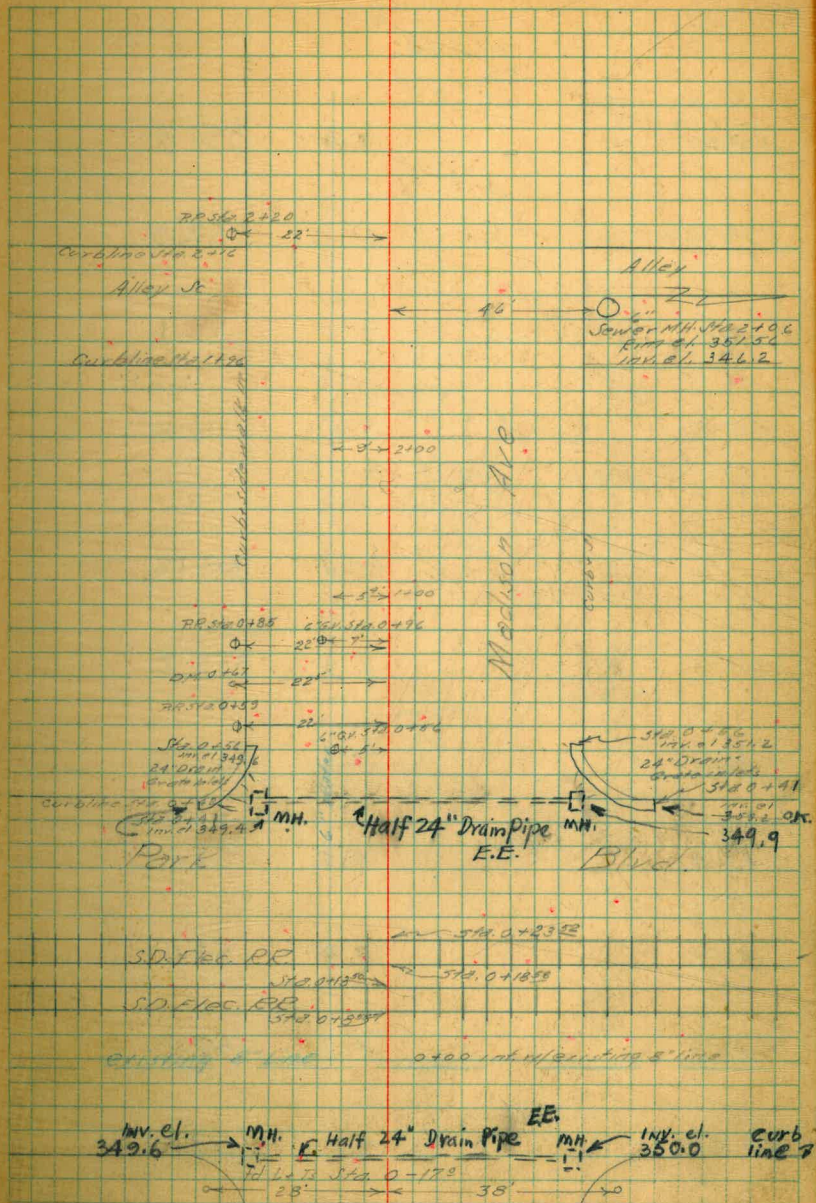 P.P. Sta. 2+20
22'
Curbline Sta. 2+16
Alley
Alley So.
46'
6"
Sewer M.H. Sta. 2+06
Rim el. 351.56
Inv. el. 346.2
Curbline Sta. 1+96
Curb & sidewalk in
Madison Ave
Curb in
2+00
1+00
P.P. Sta. 0+85
6" G.V. Sta. 0+96
22'
7'
D.M. 0+67
22'
P.P. Sta. 0+59
22'
6" G.V. Sta. 0+56
5'
Sta. 0+56
inv. el 349.6
24" Drain
Grate inlets
Sta. 0+56
inv. el 351.2
24" Drain
Grate inlets
Sta 0+41
inv. el
O.K.
349.9
Curbline Sta.
Sta 0+41
inv. el 349.4
M.H.
Half 24" Drain Pipe
E.E.
M.H.
Park
Blvd.
Sta. 0+23
S.D. Elec. RR
Sta. 0+18
Sta. 0+13
S.D. Elec. RR
existing 8" line
0+00 int. w/existing 8" line
E.E.
Inv. el.
349.6
M.H.
Half 24" Drain Pipe
M.H.
Inv. el.
350.0
curb
line
Sta. 0-17
28'
38'